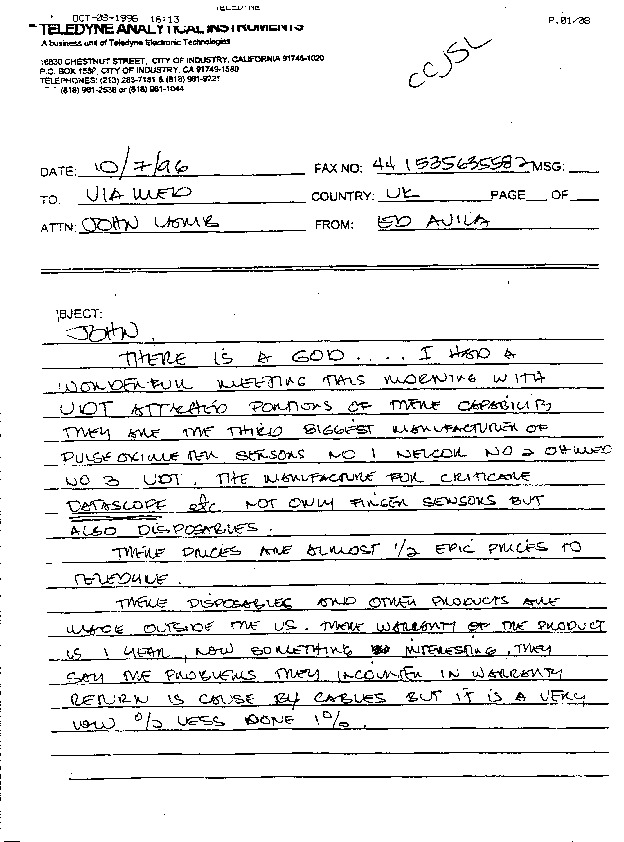 TELEDYNE
OCT-08-1996 16:13 P.01/08
TELEDYNE ANALYTICAL INSTRUMENTS
A business unit of Teledyne Electronic Technologies
16830 CHESTNUT STREET, CITY OF INDUSTRY, CALIFORNIA 91748-1020
P.O. BOX 1580, CITY OF INDUSTRY, CA 91749-1580
TELEPHONES: (213) 283-7181 & (818) 961-9221
(818) 961-2538 or (818) 961-1044
CCJSL
DATE: 10/7/96 FAX NO: 44 1535635582 MSG:
TO: VIA MED COUNTRY: UK PAGE OF
ATTN: JOHN LAMB FROM: ED AVILA
BJECT:
JOHN
THERE IS A GOD .... I HAD A
WONDERFUL MEETING THIS MORNING WITH
UDT ATTACHED PORTIONS OF THERE CAPABILITY
THEY ARE THE THIRD BIGGEST MANUFACTURER OF
PULSE OXIMETER SENSORS NO 1 NELCOR NO 2 OHMED
NO 3 UDT. THE MANUFACTURE FOR CRITICARE
DATASCOPE etc NOT ONLY FINGER SENSORS BUT
ALSO DISPOSABLES.
THERE PRICES ARE ALMOST 1/2 EPIC PRICES TO
TELEDYNE.
THERE DISPOSABLES AND OTHER PRODUCTS ARE
MADE OUTSIDE THE US. THERE WARRANTY OF THE PRODUCT
IS 1 YEAR, NOW SOMETHING INTERESTING, THEY
SAY THE PROBLEMS THEY INCOUNTER IN WARRANTY
RETURN IS CAUSE BY CABLES BUT IT IS A VERY
LOW % LESS DONE 1%.